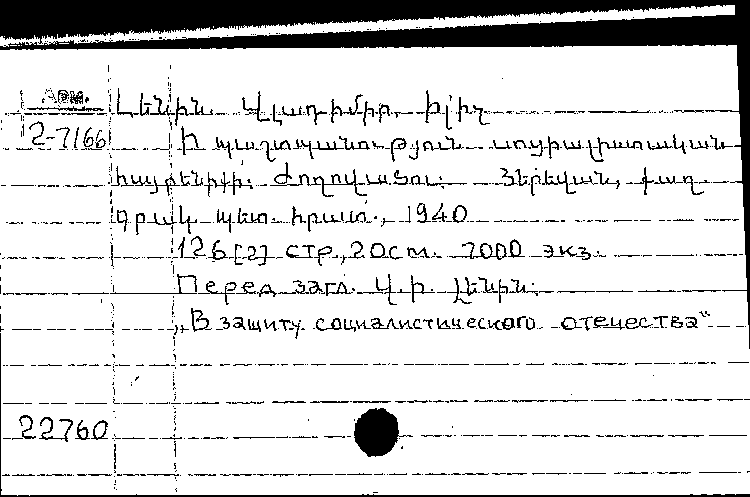 Арм. Լենին Վլադիմիր Իլիչ
2-7166 Ի պաշտպանություն սոցիալիստական
հայրենիքի: Ժողովածու: Յերևան, քաղ.
գրակ. պետ. հրատ., 1940
126 [2] стр., 20cm. 7000 экз.
Перед загл. Վ.Ի. Լենին:
„В защиту социалистического отечества“
22760